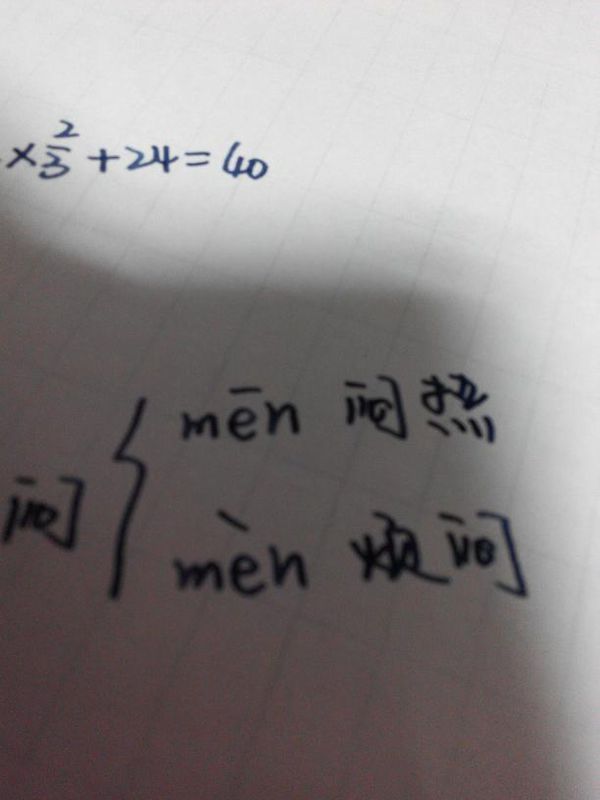 ×2/3+24=40
闷 { mēn 闷热
mèn 烦闷